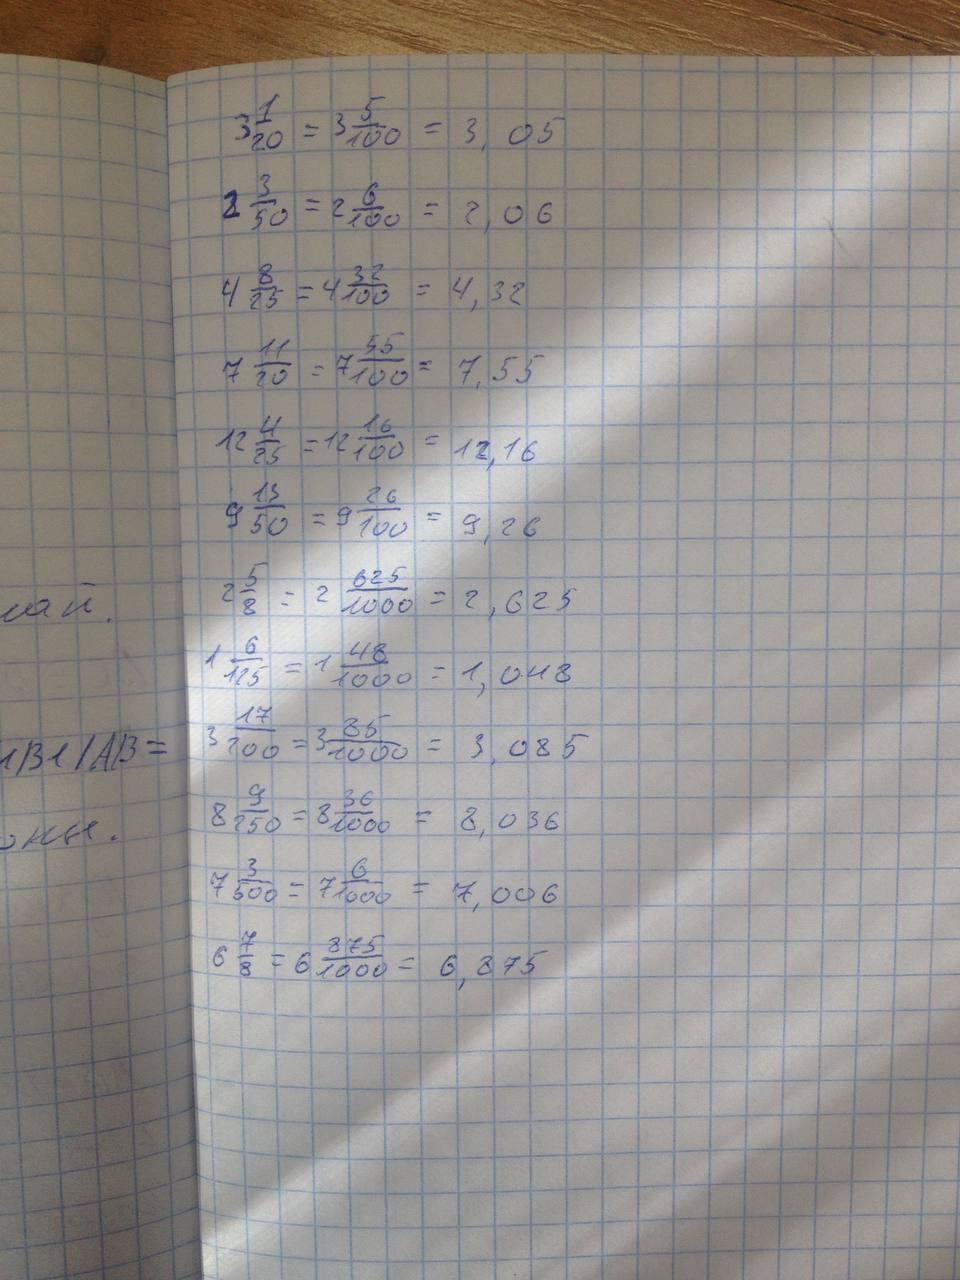 3 1/20 = 3 5/100 = 3,05
2 3/50 = 2 6/100 = 2,06
4 8/25 = 4 32/100 = 4,32
7 11/20 = 7 55/100 = 7,55
12 4/25 = 12 16/100 = 12,16
9 13/50 = 9 26/100 = 9,26
2 5/8 = 2 625/1000 = 2,625
1 6/125 = 1 48/1000 = 1,048
3 17/200 = 3 85/1000 = 3,085
8 9/250 = 8 36/1000 = 8,036
7 3/500 = 7 6/1000 = 7,006
6 7/8 = 6 875/1000 = 6,875